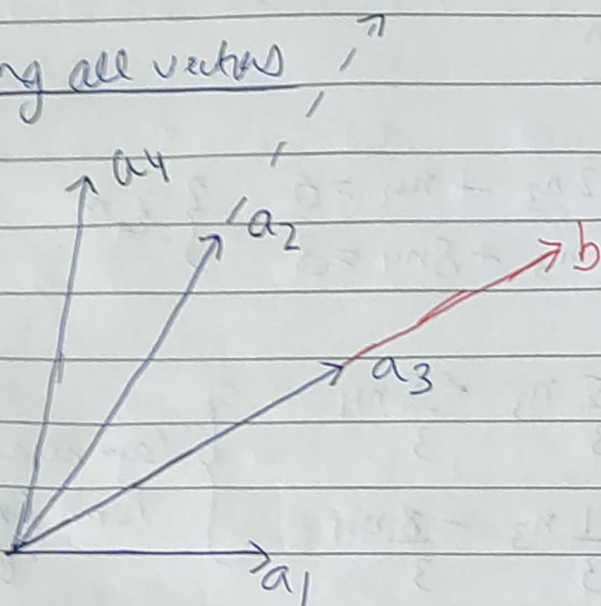 ng all vectors
a4
a2
b
a3
a1